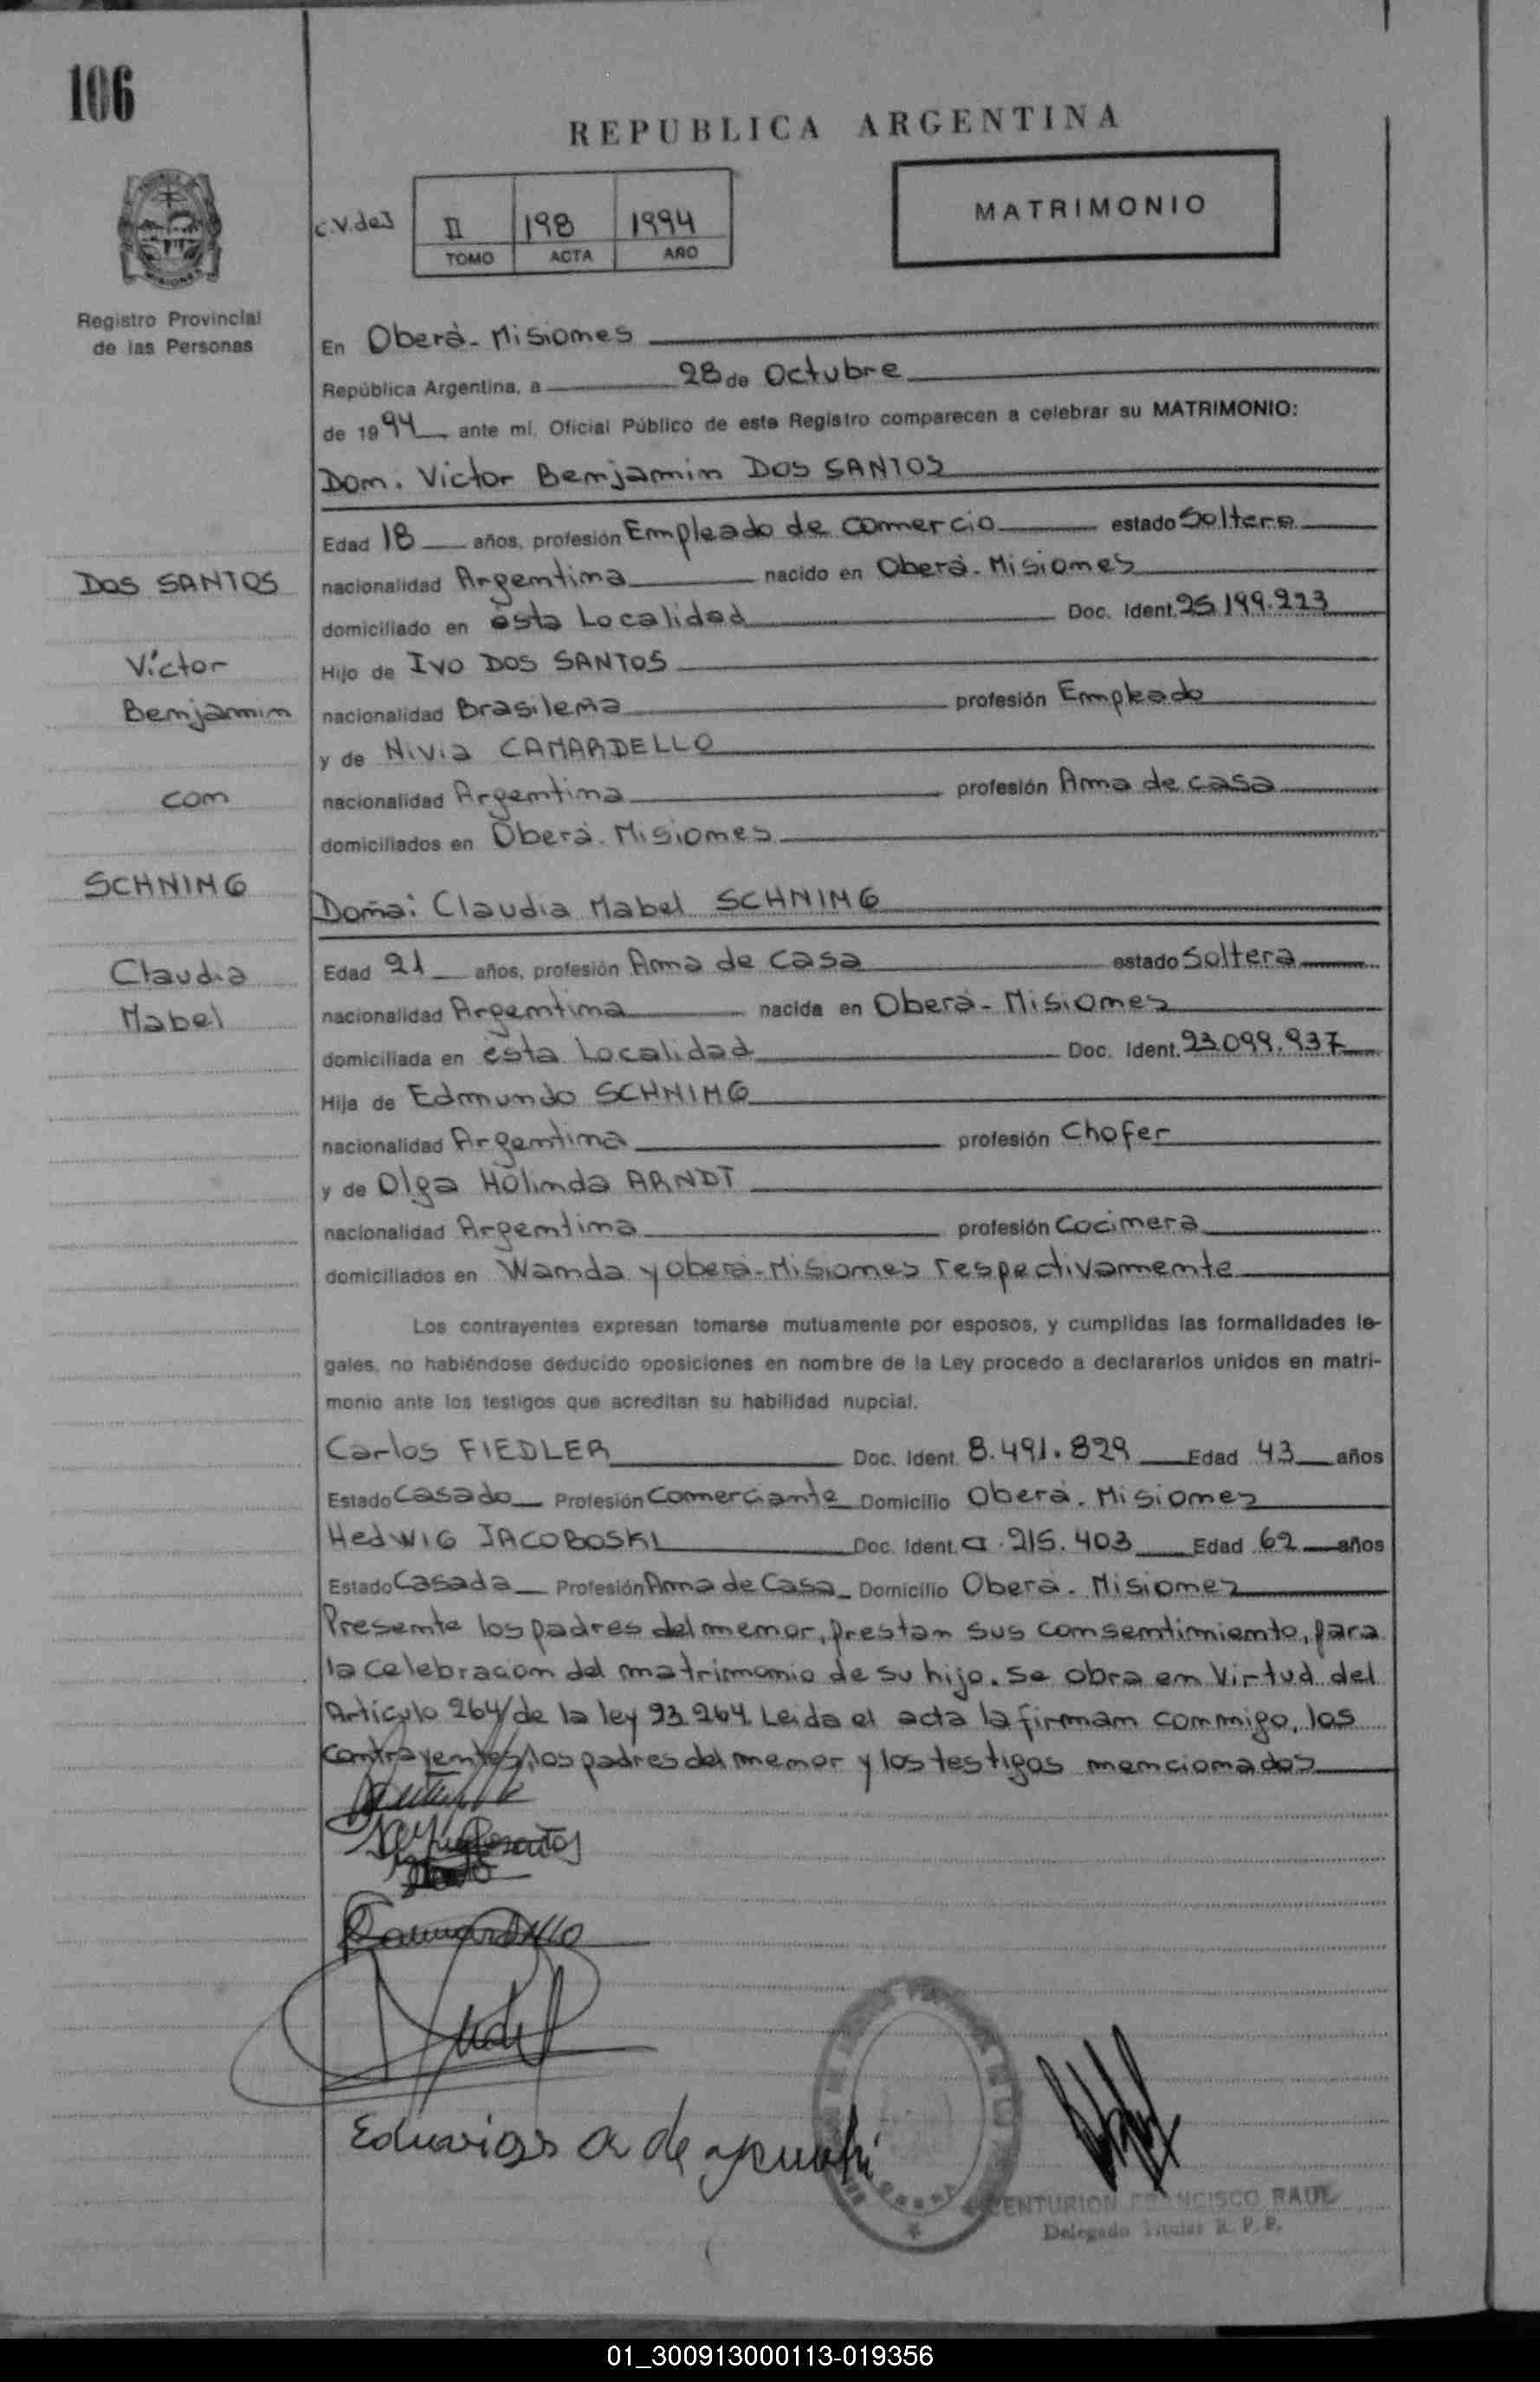 106
REPUBLICA ARGENTINA
MATRIMONIO
C.V.deJ II 198 1994
TOMO ACTA AÑO
Registro Provincial
de las Personas
En Oberá - Misiones
República Argentina, a 28 de Octubre
de 1994 ante mí, Oficial Público de este Registro comparecen a celebrar su MATRIMONIO:
Don. Victor Benjamin DOS SANTOS
Edad 18 años, profesión Empleado de comercio estado Soltero
nacionalidad Argentina nacido en Oberá - Misiones
domiciliado en ésta Localidad Doc. Ident. 25.199.223
Hijo de IVO DOS SANTOS
nacionalidad Brasileña profesión Empleado
y de Nivia CAMARDELLO
nacionalidad Argentina profesión Ama de casa
domiciliados en Oberá - Misiones
Doña: Claudia Mabel SCHNING
Edad 21 años, profesión Ama de casa estado Soltera
nacionalidad Argentina nacida en Oberá - Misiones
domiciliada en ésta Localidad Doc. Ident. 23.099.937
Hija de Edmundo SCHNING
nacionalidad Argentina profesión Chofer
y de Olga Holinda ARNDT
nacionalidad Argentina profesión Cocinera
domiciliados en Wanda y Oberá - Misiones respectivamente
Los contrayentes expresan tomarse mutuamente por esposos, y cumplidas las formalidades le-
gales, no habiéndose deducido oposiciones en nombre de la Ley procedo a declararlos unidos en matri-
monio ante los testigos que acreditan su habilidad nupcial.
Carlos FIEDLER Doc. Ident. 8.491.829 Edad 43 años
Estado Casado Profesión Comerciante Domicilio Oberá - Misiones
Hedwig JACOBOSKI Doc. Ident. 215.403 Edad 62 años
Estado Casada Profesión Ama de Casa Domicilio Oberá - Misiones
Presente los padres del menor, prestan sus consentimiento, para
la celebracion del matrimonio de su hijo. Se obra en Virtud del
Artículo 264 de la ley 23264. Leida el acta la firman conmigo, los
contrayentes, los padres del menor y los testigos mencionados
DOS SANTOS
Víctor
Benjamin
con
SCHNING
Claudia
Mabel
CENTURION FRANCISCO RAUL
Delegado Titular R. P. P.
01_300913000113-019356